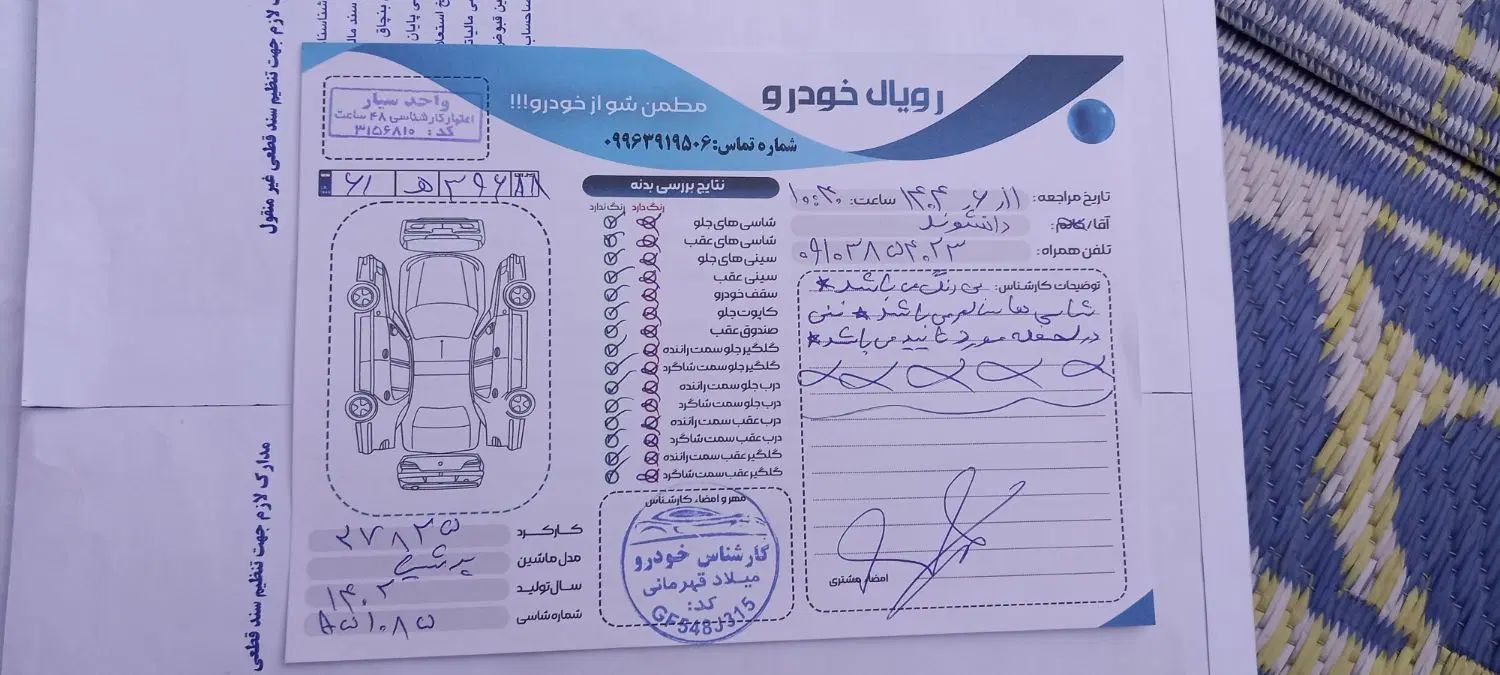 مدارک لازم جهت تنظیم سند قطعی غیر منقول
مدارک لازم جهت تنظیم سند قطعی
رویال خودرو
مطمن شو از خودرو!!!
شماره تماس: ۰۹۹۶۳۹۱۹۵۰۶
واحد سیار
اعتبار کارشناسی ۴۸ ساعت
کد: ۳۱۵۶۸۱۰
تاریخ مراجعه:
ساعت: ۱۰:۳۰
آقا/خانم: دانشوند
تلفن همراه:
توضیحات کارشناس: بی رنگ می باشد *
شاسی ها سالم می باشد * فنی
در لحظه مورد تایید می باشد *
امضاء مشتری
نتایج بررسی بدنه
رنگ دارد رنگ ندارد
شاسی های جلو
شاسی های عقب
سینی های جلو
سینی عقب
سقف خودرو
کاپوت جلو
صندوق عقب
گلگیر جلو سمت راننده
گلگیر جلو سمت شاگرد
درب جلو سمت راننده
درب جلو سمت شاگرد
درب عقب سمت راننده
درب عقب سمت شاگرد
گلگیر عقب سمت راننده
گلگیر عقب سمت شاگرد
مهر و امضاء کارشناس
کارشناس خودرو
میلاد قهرمانی
کد:
GF548J315
کارکرد ۲۷۸۲۵
مدل ماشین پرشیا
سال تولید ۱۴۰۲
شماره شاسی